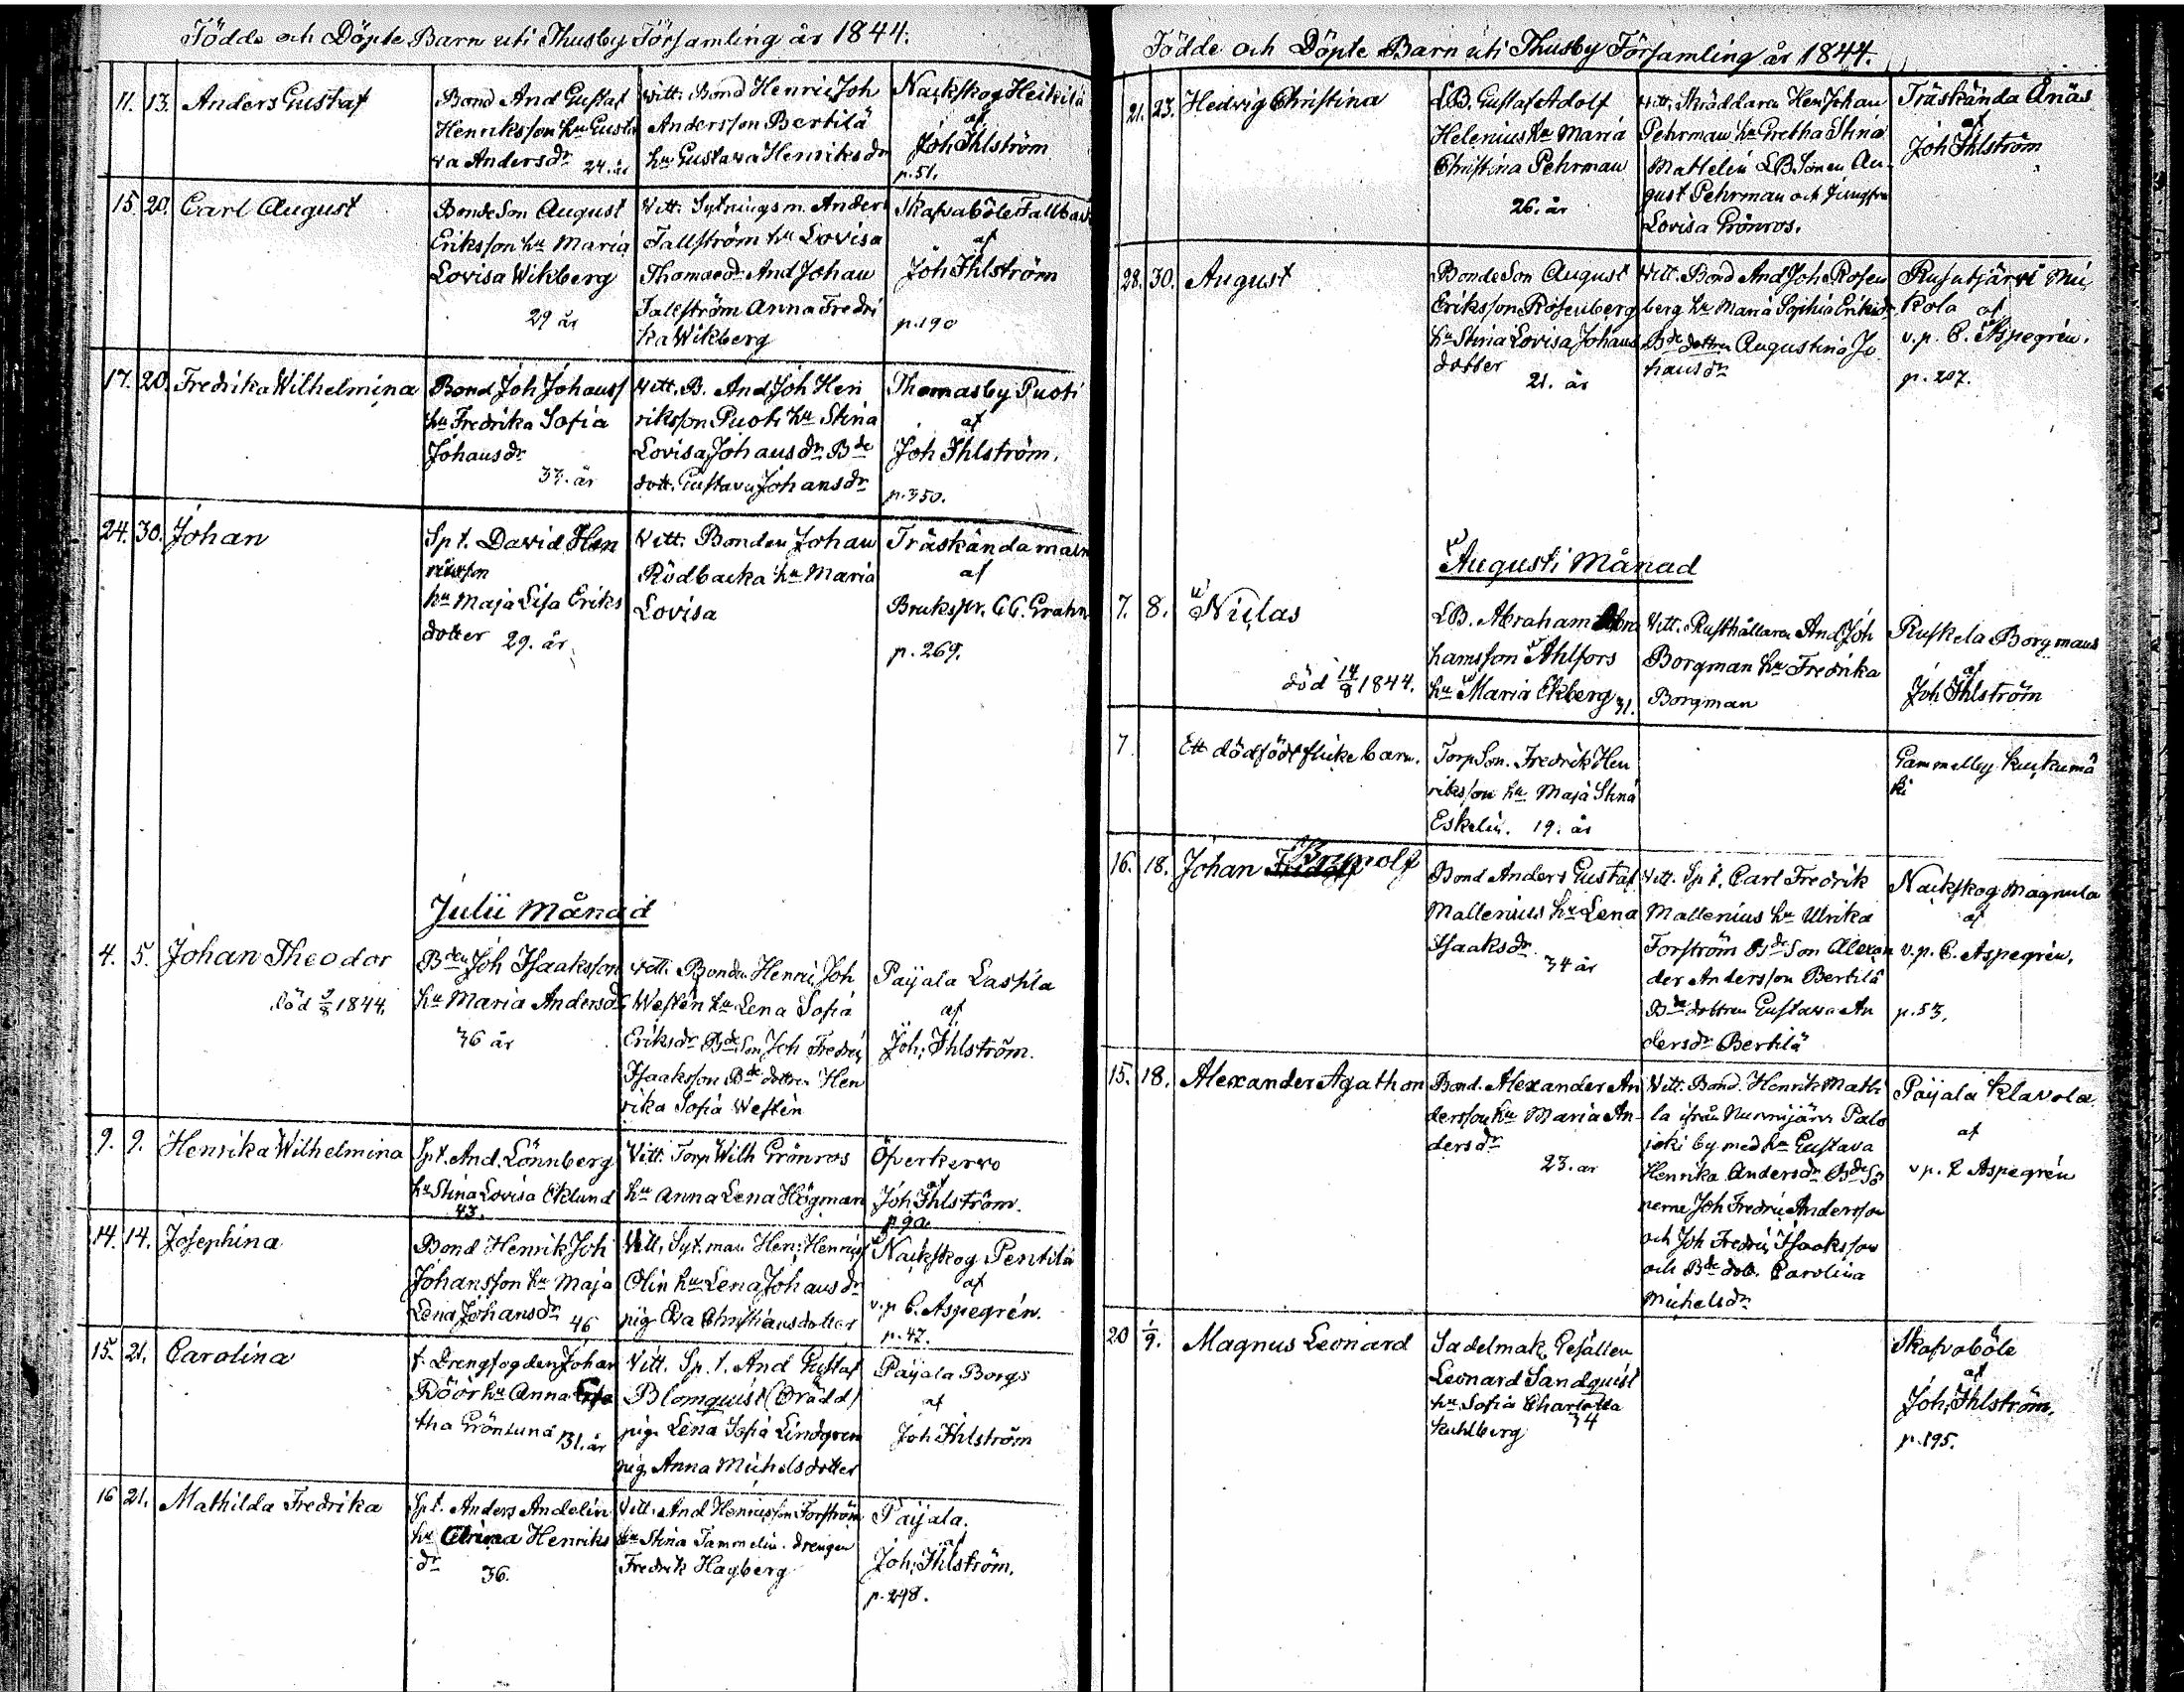 Födde och Döpte Barn uti Thusby Församling år 1844.
11. 13. Anders Gustaf
Bond And Gustaf
Henriksson hu Gusta
va Andersdr 24. år
Vitt. Bond Henric Joh
Andersson Bertilä
hu Gustava Henriksdr
Nackskog Heikilä
af
Joh Ihlström
p.51.
15. 20. Carl August
Bonde Son August
Eriksson hu Maria
Lovisa Wikberg
29 år
Vitt. Sytningsm. Anders
Tallström hu Lovisa
Thomasdr And Johan
Tallström Anna Fredri
ka Wikberg
Skafvaböle Tallbac
af
Joh Ihlström
p.190
17. 20. Fredrika Wilhelmina
Bond Joh Johanss
hu Fredrika Sofia
Johansdr
33. år
Vitt. B. And Joh Hen
riksson Puoti hu Stina
Lovisa Johansdr Bde
dott. Gustava Johansdr
Thomasby Puoti
af
Joh Ihlström.
p.350.
24. 30. Johan
Spt. David Hen
ricsson
hu Maja Lisa Eriks
dotter 29. år
Vitt. Bonden Johan
Rödbacka hu Maria
Lovisa
Träskända
af
Brukspr. C C. Grahn
p. 269.
Julii Månad
4. 5. Johan Theodor
död 9/8 1844.
Bden Joh Isaaksson
hu Maria Andersdr
36 år
Vitt. Bonden Henric Joh
Westén hu Lena Sofia
Eriksdr Bde Son Joh Fredric
Isaaksson Bde dottren Hen
rika Sofia Westén
Paijala Laskla
af
Joh; Ihlström.
9. 9. Henrika Wilhelmina
Spt. And. Lönnberg
hu Stina Lovisa Eklund
43.
Vitt. Torp Wilh Grönros
hu Anna Lena Högman
Öfverkervo
af
Joh Ihlström.
p 90.
14. 14. Josephina
Bond Henrik Joh
Johansson hu Maja
Lena Johansdr 46
Vitt. Syt. man Hen; Henrics
Olin hu Lena Johansdr
pig Eva Christiansdotter
Nackskog Pentilä
af
v.p C. Aspegrén.
p.47.
15. 21. Carolina
f. Drengfogden Johan
Röör hu Anna
tha Grönlund 31. år
Vitt. Sp. t. And Gustaf
Blomquist (Brädd)
pig. Lena Sofia Lindgren
pig. Anna Michelsdotter
Paijala Borgs
af
Joh Ihlström
16 21. Mathilda Fredrika
Spt. Anders Andelin
hu Henriks
dr 36.
Vitt. And Henricsson Forström
hu Stina Tammelin. drengen
Fredrik Hagberg
Paijala.
af
Joh; Ihlström.
p.298.
Födde och Döpte Barn uti Thusby Församling år 1844.
21. 23. Hedvig Christina
LB. Gustaf Adolf
Helenius hu Maria
Christina Pehrman
26. år
Vitt. Skräddaren Hen Johan
Pehrman hu Gretha Stina
Mattelin LBSonen Au
gust Pehrman och Jungfru
Lovisa Grönros.
Träskända Ånäs
af
Joh Ihlström
28. 30. August
Bonde Son August
Eriksson Rosenberg
hu Stina Lovisa Johans
dotter
21. år
Vitt. Bond And Joh Rosen
berg hu Maria Sophia Eriksdr
Bde dottren Augustina Jo
hansdr
Rusutjärvi Mic
kola af
v.p. C. Aspegrén.
p. 207.
Augusti Månad
7. 8. Niclas
död 14/8 1844.
LB. Abraham Abra
hamsson Ahlfors
hu Maria Ekberg 31.
Vitt. Rusthållaren And Joh
Borgman hu Fredrika
Borgman
Ruskela Borgmans
af
Joh Ihlström
7. Ett dödfödt flickebarn.
Torp Son. Fredrik Hen
riksson hu Maja Stina
Eskelin. 19. år
Gammelby Kuckumä
ki
16. 18. Johan Brynolf
Bond Anders Gustaf
Mallenius hu Lena
Isaaksdr
34 år
Vitt. Spt. Carl Fredrik
Mallenius hu Ulrika
Forström Bde Son Alexan
der Andersson Bertilä
Bde dottren Gustava An
dersdr Bertilä
Nackskog Magnula
af
v.p. C. Aspegrén.
p.53.
15. 18. Alexander Agathon
Bond. Alexander An
dersson hu Maria An
dersdr
23. år
Vitt. Bond. Henrik Mathi
la ifrån Nurmijärvi Palo
joki by med hu Gustava
Henrika Andersdr Bde Sö
nerne Joh Fredric Andersson
och Joh Fredric Isaaksson
och Bde dott. Carolina
Michelsdr
Paijala Klavola.
af
v p. C Aspegrén
20 1/9. Magnus Leonard
Sadelmak. Gesällen
Leonard Sandquist
hu Sofia Charlotta
Kuhlberg 34
Skafvaböle
af
Joh; Ihlström.
p.195.